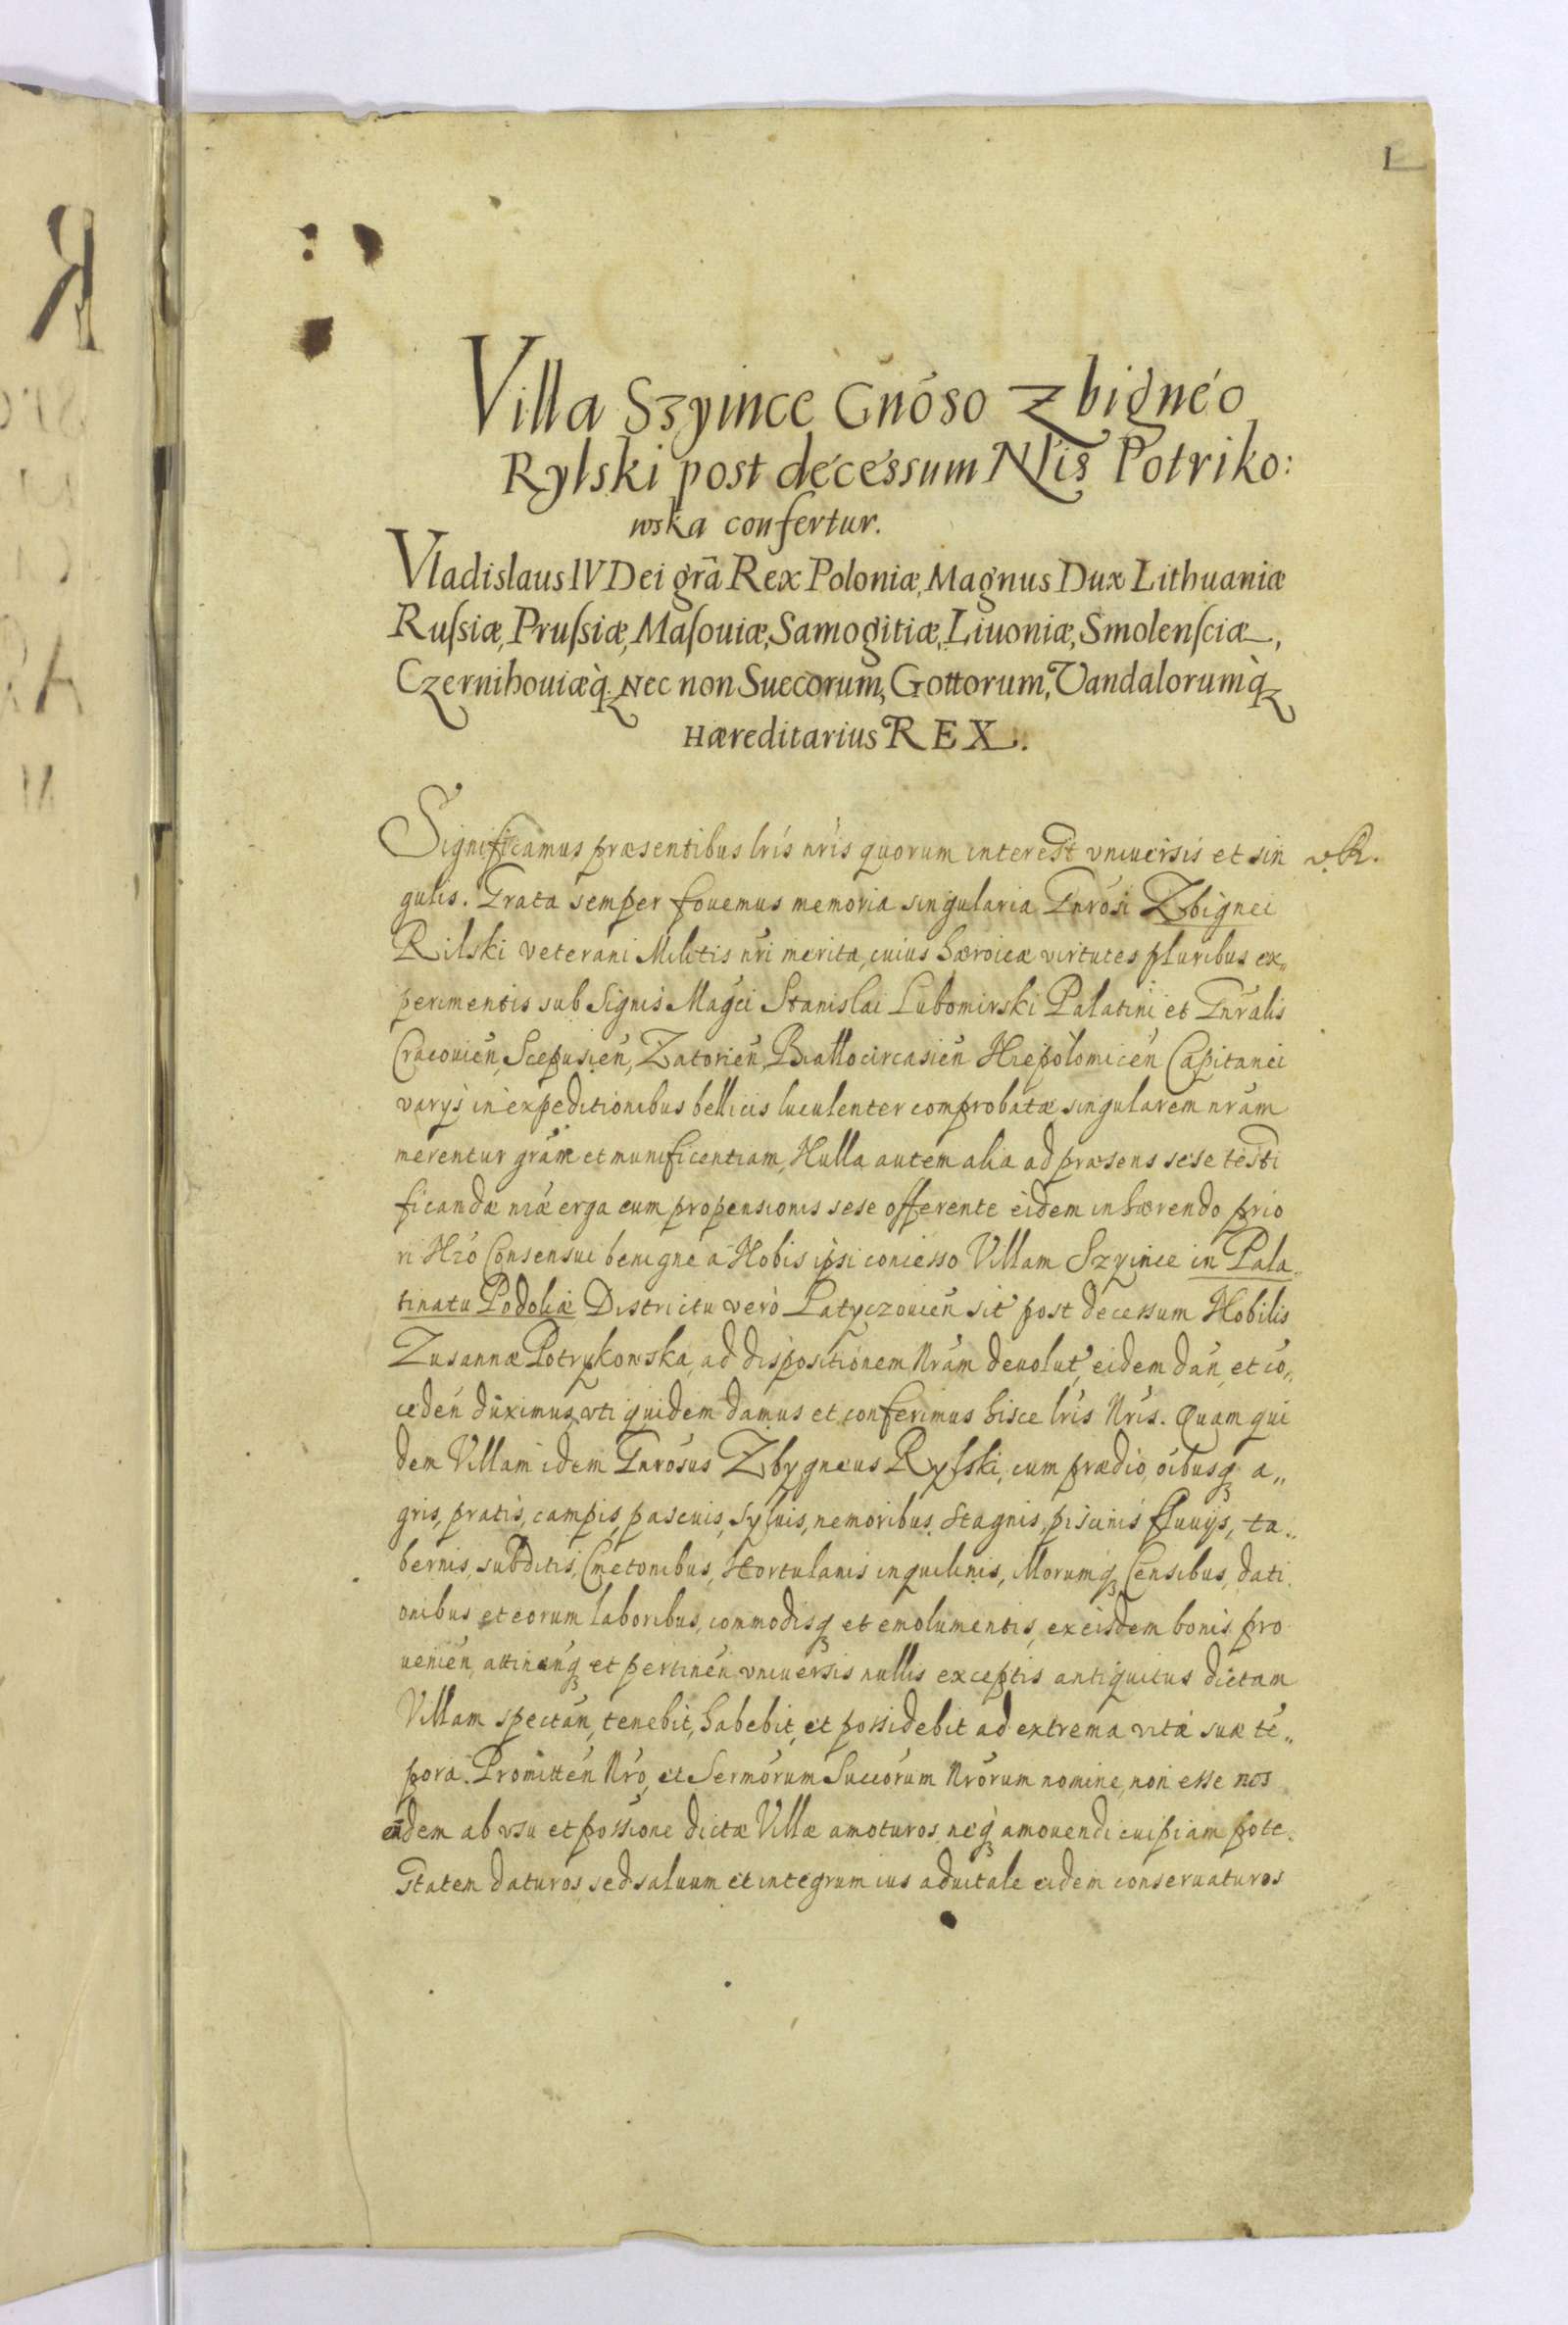 1
Villa Szyince Gnōso Zbigneo
Rylski post decessum Nlis Potriko:
wska confertur.
Vladislaus IV Dei grā Rex Poloniæ, Magnus Dux Lithuaniæ
Russiæ, Prussiæ, Masouiæ, Samogitiæ, Liuoniæ, Smolensciæ,
Czernihouiæq; Nec non Suecorum, Gottorum, Vandalorumq;
Hæreditarius REX.
Significamus præsentibus lris nris quorum interest vniuersis et sin
gulis. Grata semper fouemus memoria singularia Gnrosi Zbignei
Rilski veterani Militis nri merita, cuius hæroicæ virtutes pluribus ex„
perimentis sub signis Magci Stanislai Lubomirski Palatini et Gnralis
Cracouien, Scepusien, Zatorien, Biallocircasien Niepolomicen Capitanei
varys in expeditionibus bellicis luculenter comprobatæ singularem nram
merentur gram et munificentiam, Nulla autem alia ad præsens sese testi
ficandæ nræ erga eum propensionis sese offerente eidem inhærendo prio
ri Nro Consensui benigne a Nobis ipsi concesso Villam Szyince in Pala„
tinatu Podoliæ Districtu vero Latyczouien sit post decessum Nobilis
Zusannæ Potrykowska, ad dispositionem Nram deuolut, eidem dan, et co„
ceden duximus, vti quidem damus et conferimus hisce lris Nris. Quam qui
dem Villam idem Gnrosus Zbygneus Rylski, cum prædio, oibusq; a„
gris, pratis, campis, pascuis, syluis, nemoribus, stagnis, piscinis fluuijs, ta„
bernis, subditis, Cmetonibus, Hortulanis inquilinis, Illorumq; Censibus, dati
onibus et eorum laboribus, commodisq; et emolumentis, ex eisdem bonis pro
uenien, attinenq; et pertinen vniuersis nullis exceptis antiquitus dictam
Villam spectan, tenebit, habebit, et possidebit ad extrema vitæ suæ te„
pora. Promitten Nro, et Sermorum Succorum Nrorum nomine, non esse nos
eūdem ab vsu et possione dictæ Villæ amoturos, neq; amouendi cuipiam pote„
statem daturos, sed saluum et integrum ius aduitale eidem conseruaturos